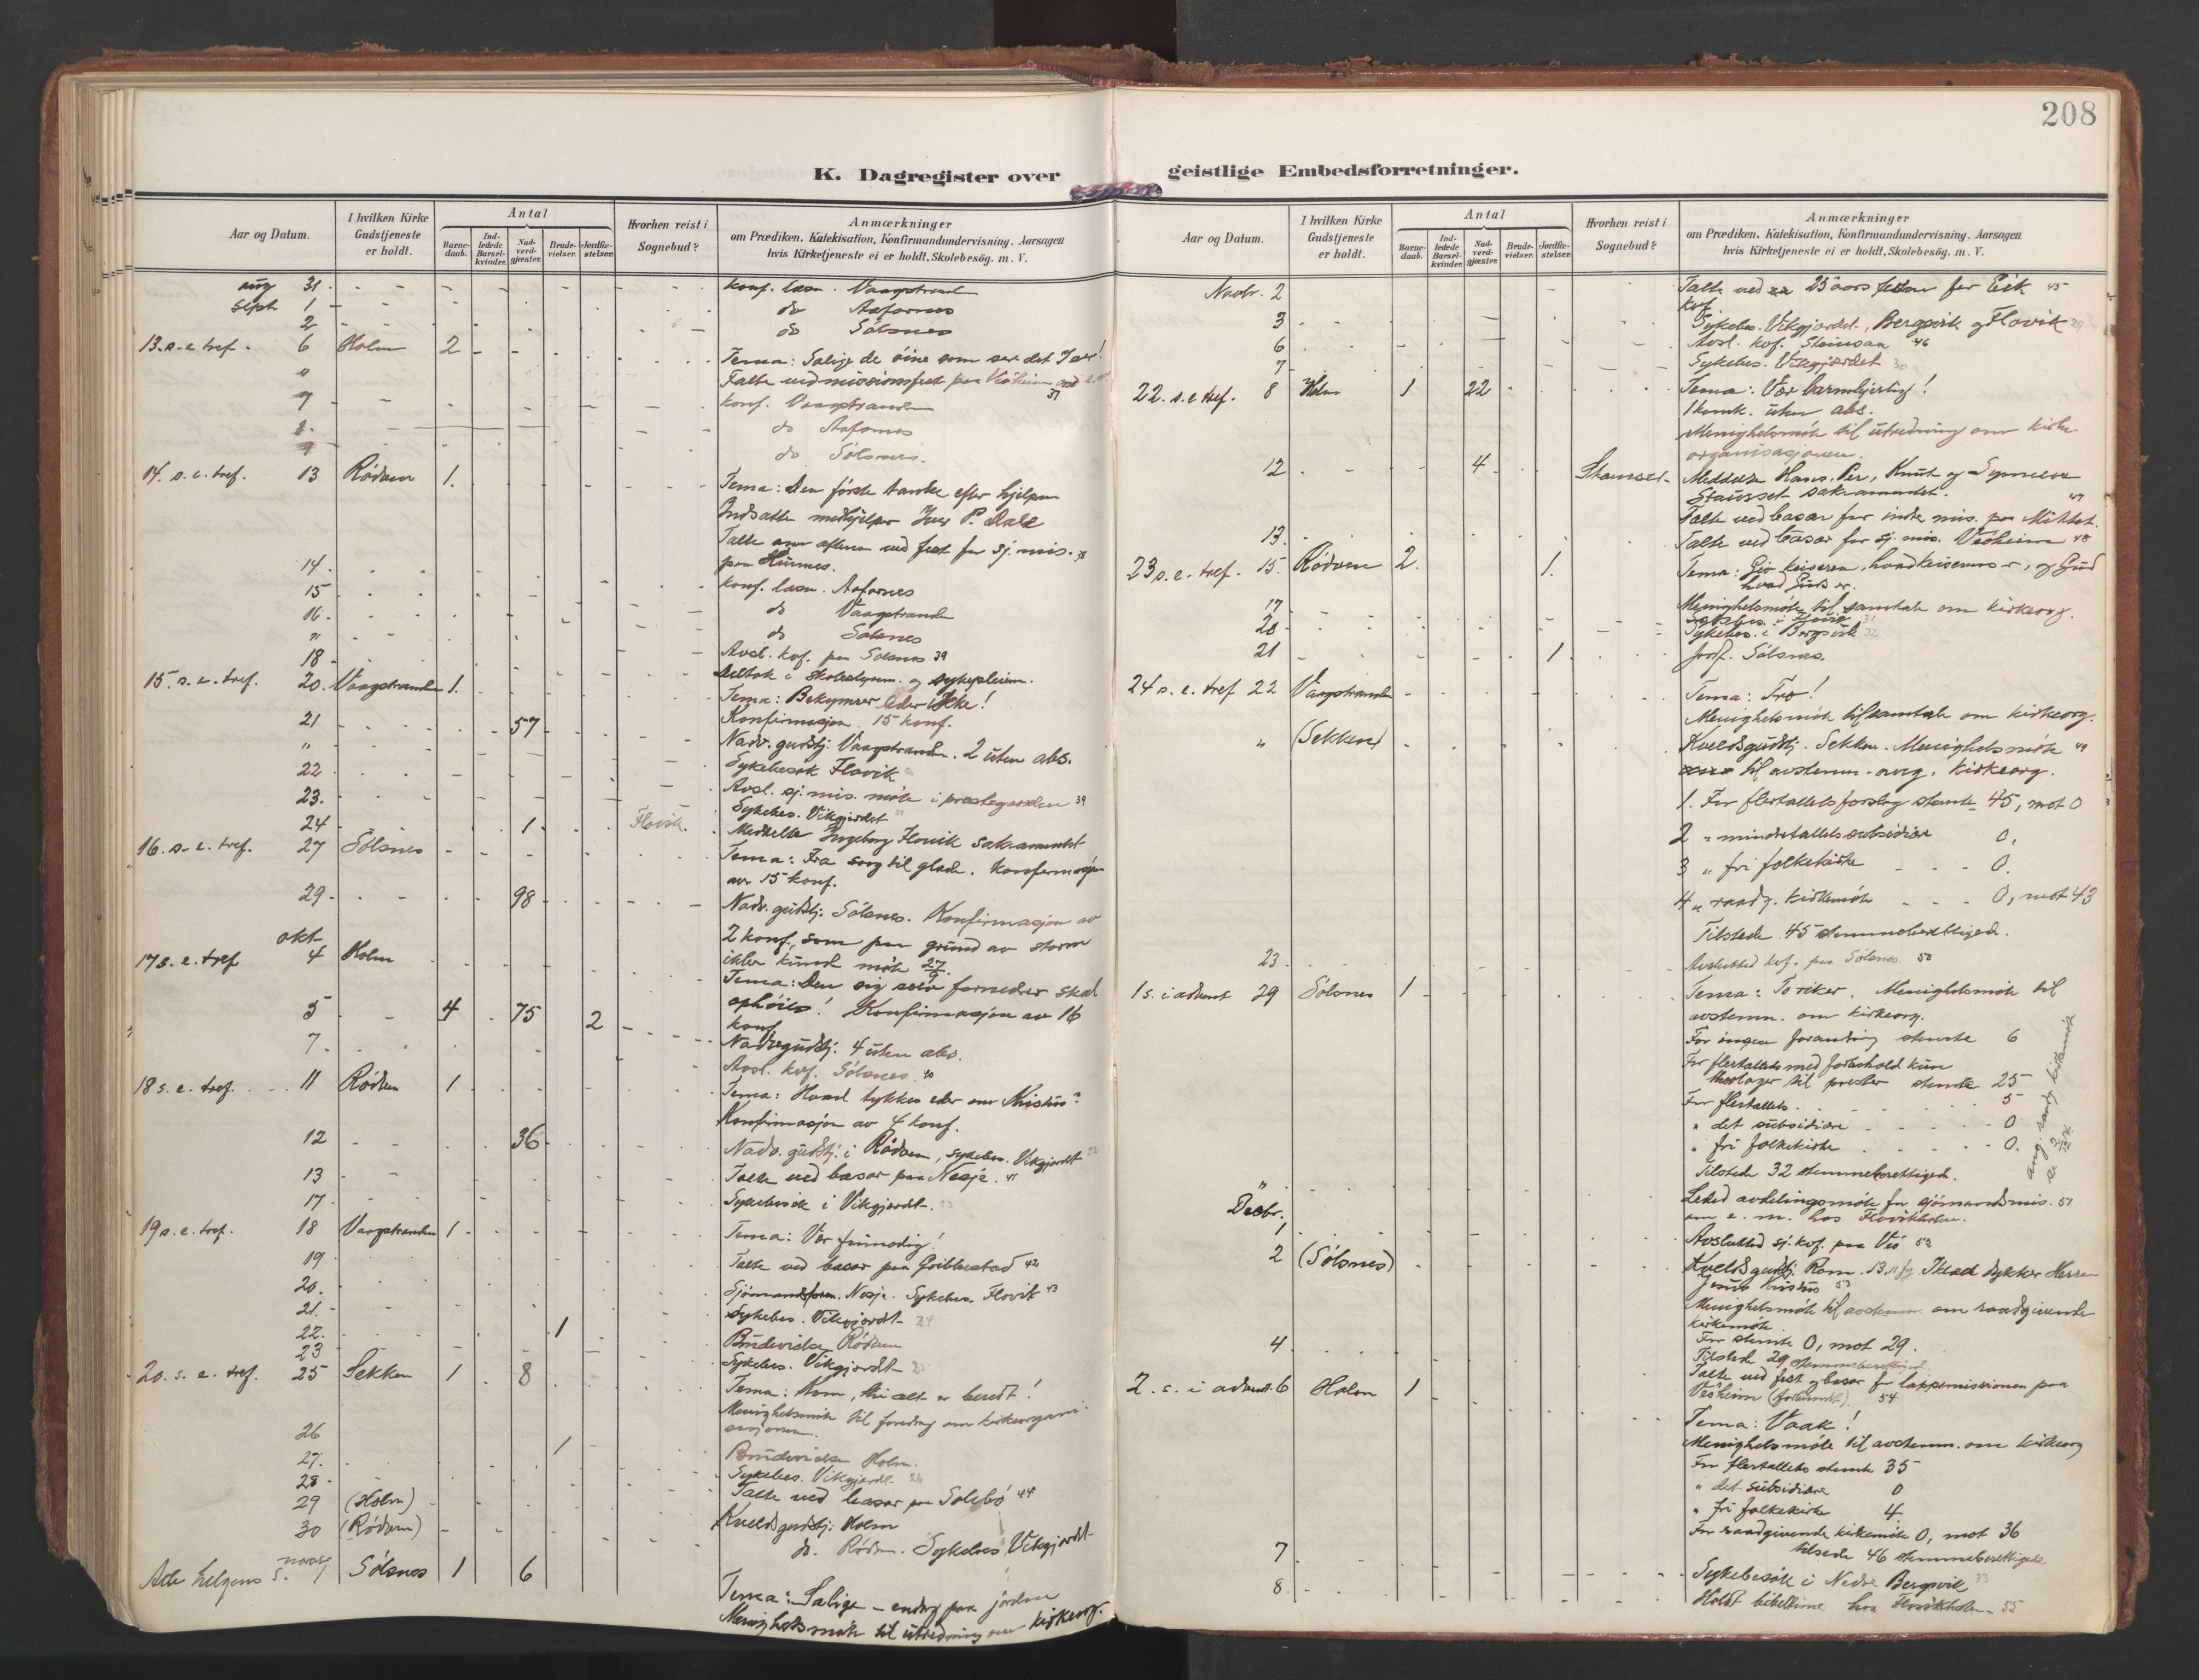 208
K. Dagregister over geistlige Embedsforretninger.
Aar og Datum.
I hvilken Kirke Gudstjeneste er holdt.
Antal
Barne-daab.
Ind-ledede Barsel-kvinder.
Nad-verd-gjæster.
Brude-vielser.
Jordfæ-stelser.
Hvorhen reist i Sognebud?
Anmærkninger
om Prædiken, Katekisation, Konfirmandundervisning. Aarsagen
hvis Kirketjeneste ei er holdt, Skolebesög. m. V.
aug 31 - konf. læsn. Vaagstranden
Sept 1 - do Aafarnes
2 - do Sölsnes
13. s. e. tref. 6 Holm 2 Tema: Salige de öine som ser det I ser!
" Talte ved missionsfest paa Visheim 37
7 konf. Vaagstranden
8. do Aafarnes
9 do Sölsnes.
14. s. e. tref. 13 Rödven 1. Tema: Den förste tanke efter hjelpen
Indsatte medhjelper Iver P. Dale
Talte om aftenen ved fest for sj. mis. 38
paa Hunnes.
14. konf. læsn. Aafarnes
15 do Vaagstranden
16. do Sölsnes
" Avsl. kof. paa Sölsnes 39
18 Deltok i skolestyrem. og sykepleiem.
15. s. e. tref. 20. Vaagstranden 1. Tema: Bekymrer eder ikke!
Konfirmasjon 15 konf.
21 57 Nadv. gudstj. Vaagstranden. 2 uten abs.
" Sykebesök Flovik
22 Avsl. sj. mis. möte i prestegaarden 39
23. Sykebes. Vikgjærdet
24 1 Flovik. Meddelte Ingeborg Flovik sakramentet
16. s. e. tref. 27 Sölsnes Tema: Fra sorg til glæde. Konfirmasjon
av 15 konf.
29 98 Nadv. gudstj. Sölsnes. Konfirmasjon av
2 konf., som paa grund av storm
ikke kunde möte 27/9.
okt
17 s. e. tref 4 Holm Tema: Den sig selv fornedrer skal
ophöies! Konfirmasjon av 16
konf.
5 4 75 2 Nadv. gudstj. 4 uten abs.
7 Avsl. kof. Sölsnes. 40
18 s. e. tref. 11 Rödven 1 Tema: Hvad tykkes eder om Kristus?
Konfirmasjon av 4 konf.
12 36 Nadv. gudstj. i Rödven, sykebes. Vikgjærdet
13 Talte ved basar paa Nesje. 41
17 Sykebesök i Vikgjærdet
19 s. e. tref. 18 Vaagstranden 1 Tema: Vær frimodig!
19 Talte ved basar paa Gribbestad 42
20. Sjömandsforen. Nesje. Sykebes. Flovik 43
21. Sykebes. Vikgjærdet 24
22. 1 Brudevielse Rödven
23 Sykebes. Vikgjærdet 25
20. s. e. tref. 25 Sekken 1 8 Tema: Kom, thi alt er beredt!
Menighetsmöte til foredrag om kirkeorgani-
sasjonen.
26 1 Brudevielse Holm.
27. Sykebes. Vikgjærdet. 26
28 Talte ved basar paa Solebö 44
29 (Holm) Kveldsgudstj. Holm
30 (Rödven) do. Rödven. Sykebes. Vikgjærdet
Alle helgens s. novbr 1 Sölsnes 1 6 Tema: Salige - endog paa jorden
Menighetsmöte til utredning om kirkeorg.
Aar og Datum.
I hvilken Kirke Gudstjeneste er holdt.
Antal
Barne-daab.
Ind-ledede Barsel-kvinder.
Nad-verd-gjæster.
Brude-vielser.
Jordfæ-stelser.
Hvorhen reist i Sognebud?
Anmærkninger
om Prædiken, Katekisation, Konfirmandundervisning. Aarsagen
hvis Kirketjeneste ei er holdt, Skolebesög. m. V.
Novbr. 2 Talte ved 25 aars festen for Eik 45
kof.
3 Sykebes. Vikgjærdet, Bergsvik og Flovik 29
6 Avsl. kof. 46
7 Sykebes. Vikgjærdet 30
22. s. e. tref. 8 Holm 1 22 Tema: Vær barmhjertig!
1 komk. uten abs.
Menighetsmöte til utredning om kirke
organisasjonen.
12 4 Meddelte Hans, Per, Knut og
sakramentet. 47
Talte ved basar for indre mis. paa Mittet.
13. Talte ved basar for sj. mis. Visheim 48
23 s. e. tref. 15. Rödven 2. 1. Tema: Giv keiseren, hvad keiserens er, og Gud
hvad Guds er.
17 Menighetsmöte til samtale om kirkeorg.
Sykebes. i Flovik 31
20 Sykebes. i Bergsvik 32
21 1 Jordf. Sölsnes.
24 s. e. tref 22 Vaagstranden Tema: Tro!
Menighetsmöte til samtale om kirkeorg.
" (Sekken) Kveldsgudstj. Sekken. Menighetsmöte 49
til avstemn. ang. kirkeorg.
1. For flertallets forslag stemte 45, mot 0
2 " mindretallets subsidiære 0,
3 " fri folkekirke - - - 0.
4 " raadg. kirkemöte - - - 0, mot 43
Tilstede 45 stemmeberettigede.
23 Avsluttet kof. paa Sölsnes. 50
1 s. i advent 29 Sölsnes 1 Tema: To riker. Menighetsmöte til
avstemn. om kirkeorg.
For ingen forandring stemte 6
For flertallets med forbehold kun
theologer til prester stemte 25
For flertallets. 5
" det subsidiære - 0
" fri folkekirke - 0.
ang. raadg. kirkemöte
Tilstede 32 stemmeberettigede.
" Ledet avdelingsmöte for sjömandsmis. 51
om e. m. hos Flovikholm.
Decbr.
1 Avsluttet sj. kof. paa Vis 52
2 (Sölsnes) Kveldsgudstj. Rom. 13. Iklæd dykker Herren
Jesus Kristus 53
Menighetsmöte til avstemn. om raadgivende
kirkemöte
For stemte 0, mot 29.
Tilstede 29 stemmeberettiget.
4 Talte ved fest og basar for lappemissionen paa
Visheim 54
2. s. i advent 6 Holm 1 Tema: Vaak!
Menighetsmöte til avstemn. om kirkeorg
For flertallets stemte 35
" det subsidiære 0
" fri folkekirke 4
For raadgivende kirkemöte 0, mot 36
tilstede 46 stemmeberettigede
7 Sykebesök i Nedre Bergsvik 33
8. Holdt bibeltime hos Flovikholm 55